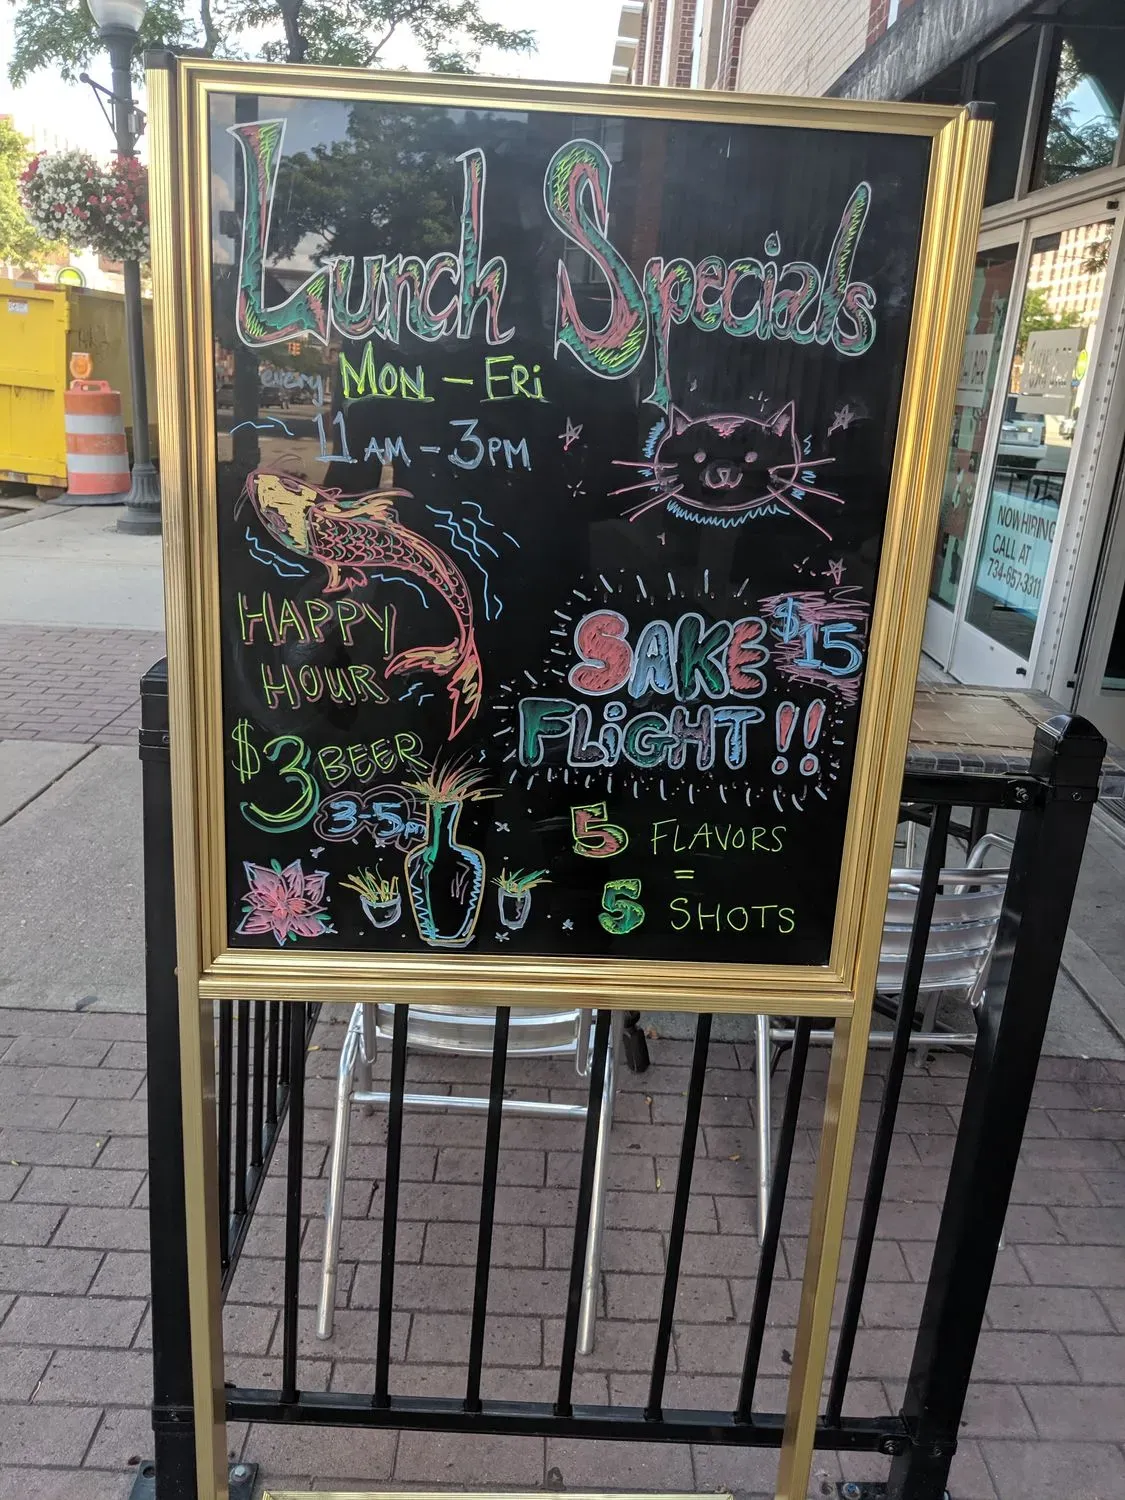 Lunch Specials
every MON - FRi
11 AM - 3 PM
HAPPY
HOUR
$3 BEER
3-5pm
SAKE $15
FLiGHT!!
5 FLAVORS
=
5 SHOTS
NOW HIRING
CALL AT
734-657-3311